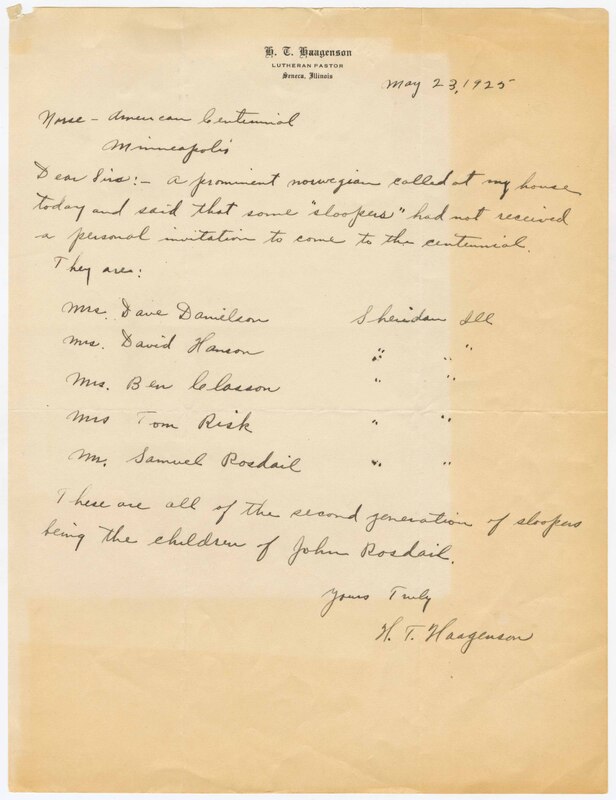 H. T. Haagenson
LUTHERAN PASTOR
Seneca, Illinois
May 23, 1925
Norse-American Centennial
Minneapolis
Dear Sirs:- A prominent norwegian called at my house
today and said that some "sloopers" had not received
a personal invitation to come to the centennial.
They are:
Mrs. Dave Danielson Sheridan Ill
Mrs. David Hanson " "
Mrs. Ben Classon " "
Mrs Tom Risk " "
Mr. Samuel Rosdail " "
These are all of the second generation of sloopers
being the children of John Rosdail.
Yours Truly
H. T. Haagenson